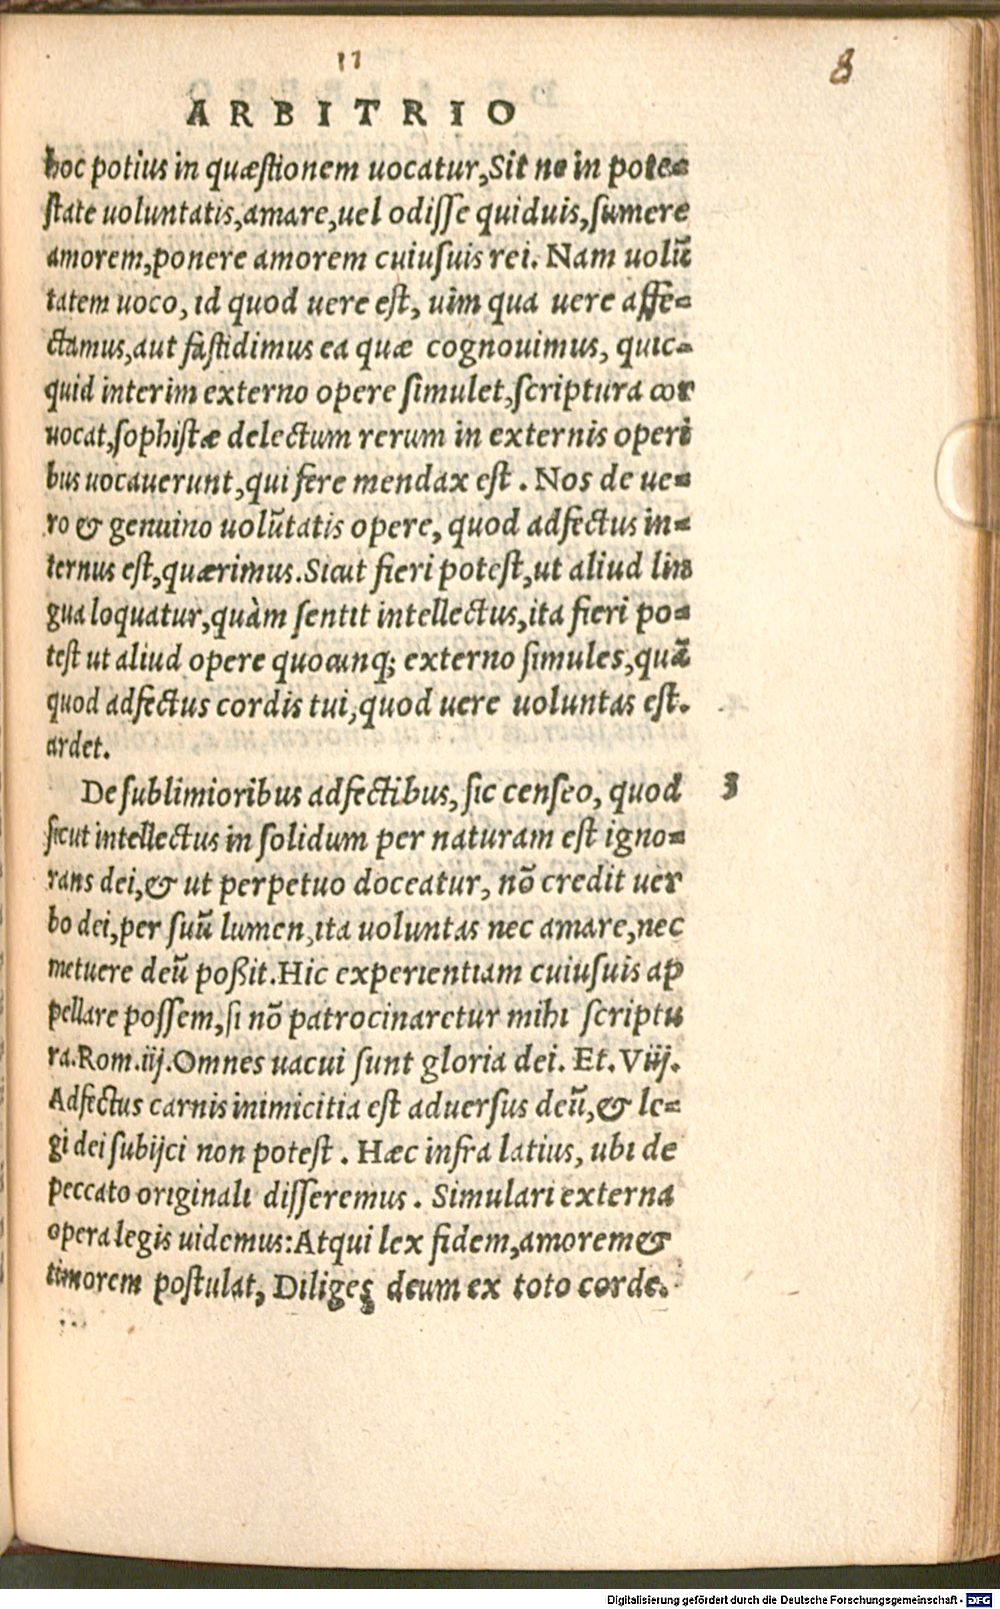 11
8
ARBITRIO
hoc potius in quæstionem uocatur, Sit ne in pote=
state uoluntatis, amare, uel odisse quiduis, sumere
amorem, ponere amorem cuiusuis rei. Nam uolũ
tatem uoco, id quod uere est, uim qua uere affe=
ctamus, aut fastidimus ea quæ cognouimus, quic=
quid interim externo opere simulet, scriptura cor
uocat, sophistæ delectum rerum in externis operi
bus uocauerunt, qui fere mendax est. Nos de ue=
ro & genuino uolũtatis opere, quod adfectus in=
ternus est, quærimus. Sicut fieri potest, ut aliud lin
gua loquatur, quàm sentit intellectus, ita fieri po=
test ut aliud opere quocunq; externo simules, quã
quod adfectus cordis tui, quod uere uoluntas est.
ardet.
De sublimioribus adfectibus, sic censeo, quod
3
sicut intellectus in solidum per naturam est igno=
rans dei, & ut perpetuo doceatur, nõ credit uer
bo dei, per suũ lumen, ita uoluntas nec amare, nec
metuere deũ poßit. Hic experientiam cuiusuis ap
pellare possem, si nõ patrocinaretur mihi scriptu
ra. Rom. iij. Omnes uacui sunt gloria dei. Et. Viij.
Adfectus carnis inimicitia est aduersus deũ, & le=
gi dei subijci non potest. Hæc infra latius, ubi de
peccato originali disseremus. Simulari externa
opera legis uidemus: Atqui lex fidem, amorem &
timorem postulat, Diliges deum ex toto corde.
Digitalisierung gefördert durch die Deutsche Forschungsgemeinschaft - DFG